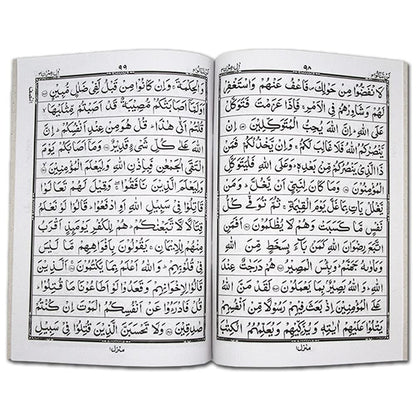 ٩٨
لَا نْفَضُّوْا مِنْ حَوْلِكَ فَاعْفُ عَنْهُمْ وَاسْتَغْفِرْ
لَهُمْ وَشَاوِرْهُمْ فِي الْاَمْرِ فَاِذَا عَزَمْتَ فَتَوَكَّلْ
عَلَى اللّٰهِ اِنَّ اللّٰهَ يُحِبُّ الْمُتَوَكِّلِيْنَ اِنْ
يَّنْصُرْكُمُ اللّٰهُ فَلَا غَالِبَ لَكُمْ وَاِنْ يَّخْذُلْكُمْ فَمَنْ
ذَا الَّذِيْ يَنْصُرُكُمْ مِّنْ بَعْدِهٖ وَعَلَى اللّٰهِ فَلْيَتَوَكَّلِ
الْمُؤْمِنُوْنَ وَمَا كَانَ لِنَبِيٍّ اَنْ يَّغُلَّ وَمَنْ
يَّغْلُلْ يَاْتِ بِمَا غَلَّ يَوْمَ الْقِيٰمَةِ ثُمَّ تُوَفّٰى كُلُّ
نَفْسٍ مَّا كَسَبَتْ وَهُمْ لَا يُظْلَمُوْنَ اَفَمَنِ
اتَّبَعَ رِضْوَانَ اللّٰهِ كَمَنْ بَآءَ بِسَخَطٍ مِّنَ اللّٰهِ
وَمَاْوٰىهُ جَهَنَّمُ وَبِئْسَ الْمَصِيْرُ هُمْ دَرَجٰتٌ عِنْدَ
اللّٰهِ وَاللّٰهُ بَصِيْرٌ بِمَا يَعْمَلُوْنَ لَقَدْ مَنَّ اللّٰهُ
عَلَى الْمُؤْمِنِيْنَ اِذْ بَعَثَ فِيْهِمْ رَسُوْلًا مِّنْ اَنْفُسِهِمْ
يَتْلُوْا عَلَيْهِمْ اٰيٰتِهٖ وَيُزَكِّيْهِمْ وَيُعَلِّمُهُمُ الْكِتٰبَ
منزل١
٩٩
وَالْحِكْمَةَ وَاِنْ كَانُوْا مِنْ قَبْلُ لَفِيْ ضَلٰلٍ مُّبِيْنٍ
اَوَلَمَّآ اَصَابَتْكُمْ مُّصِيْبَةٌ قَدْ اَصَبْتُمْ مِّثْلَيْهَا
قُلْتُمْ اَنّٰى هٰذَا قُلْ هُوَ مِنْ عِنْدِ اَنْفُسِكُمْ اِنَّ
اللّٰهَ عَلٰى كُلِّ شَيْءٍ قَدِيْرٌ وَمَآ اَصَابَكُمْ يَوْمَ
الْتَقَى الْجَمْعٰنِ فَبِاِذْنِ اللّٰهِ وَلِيَعْلَمَ الْمُؤْمِنِيْنَ
وَلِيَعْلَمَ الَّذِيْنَ نَافَقُوْا وَقِيْلَ لَهُمْ تَعَالَوْا
قَاتِلُوْا فِيْ سَبِيْلِ اللّٰهِ اَوِ ادْفَعُوْا قَالُوْا لَوْ نَعْلَمُ
قِتَالًا لَّا اتَّبَعْنٰكُمْ هُمْ لِلْكُفْرِ يَوْمَئِذٍ اَقْرَبُ
مِنْهُمْ لِلْاِيْمَانِ يَقُوْلُوْنَ بِاَفْوَاهِهِمْ مَّا لَيْسَ
فِيْ قُلُوْبِهِمْ وَاللّٰهُ اَعْلَمُ بِمَا يَكْتُمُوْنَ اَلَّذِيْنَ
قَالُوْا لِاِخْوَانِهِمْ وَقَعَدُوْا لَوْ اَطَاعُوْنَا مَا قُتِلُوْا
قُلْ فَادْرَءُوْا عَنْ اَنْفُسِكُمُ الْمَوْتَ اِنْ كُنْتُمْ
صٰدِقِيْنَ وَلَا تَحْسَبَنَّ الَّذِيْنَ قُتِلُوْا فِيْ سَبِيْلِ
منزل١